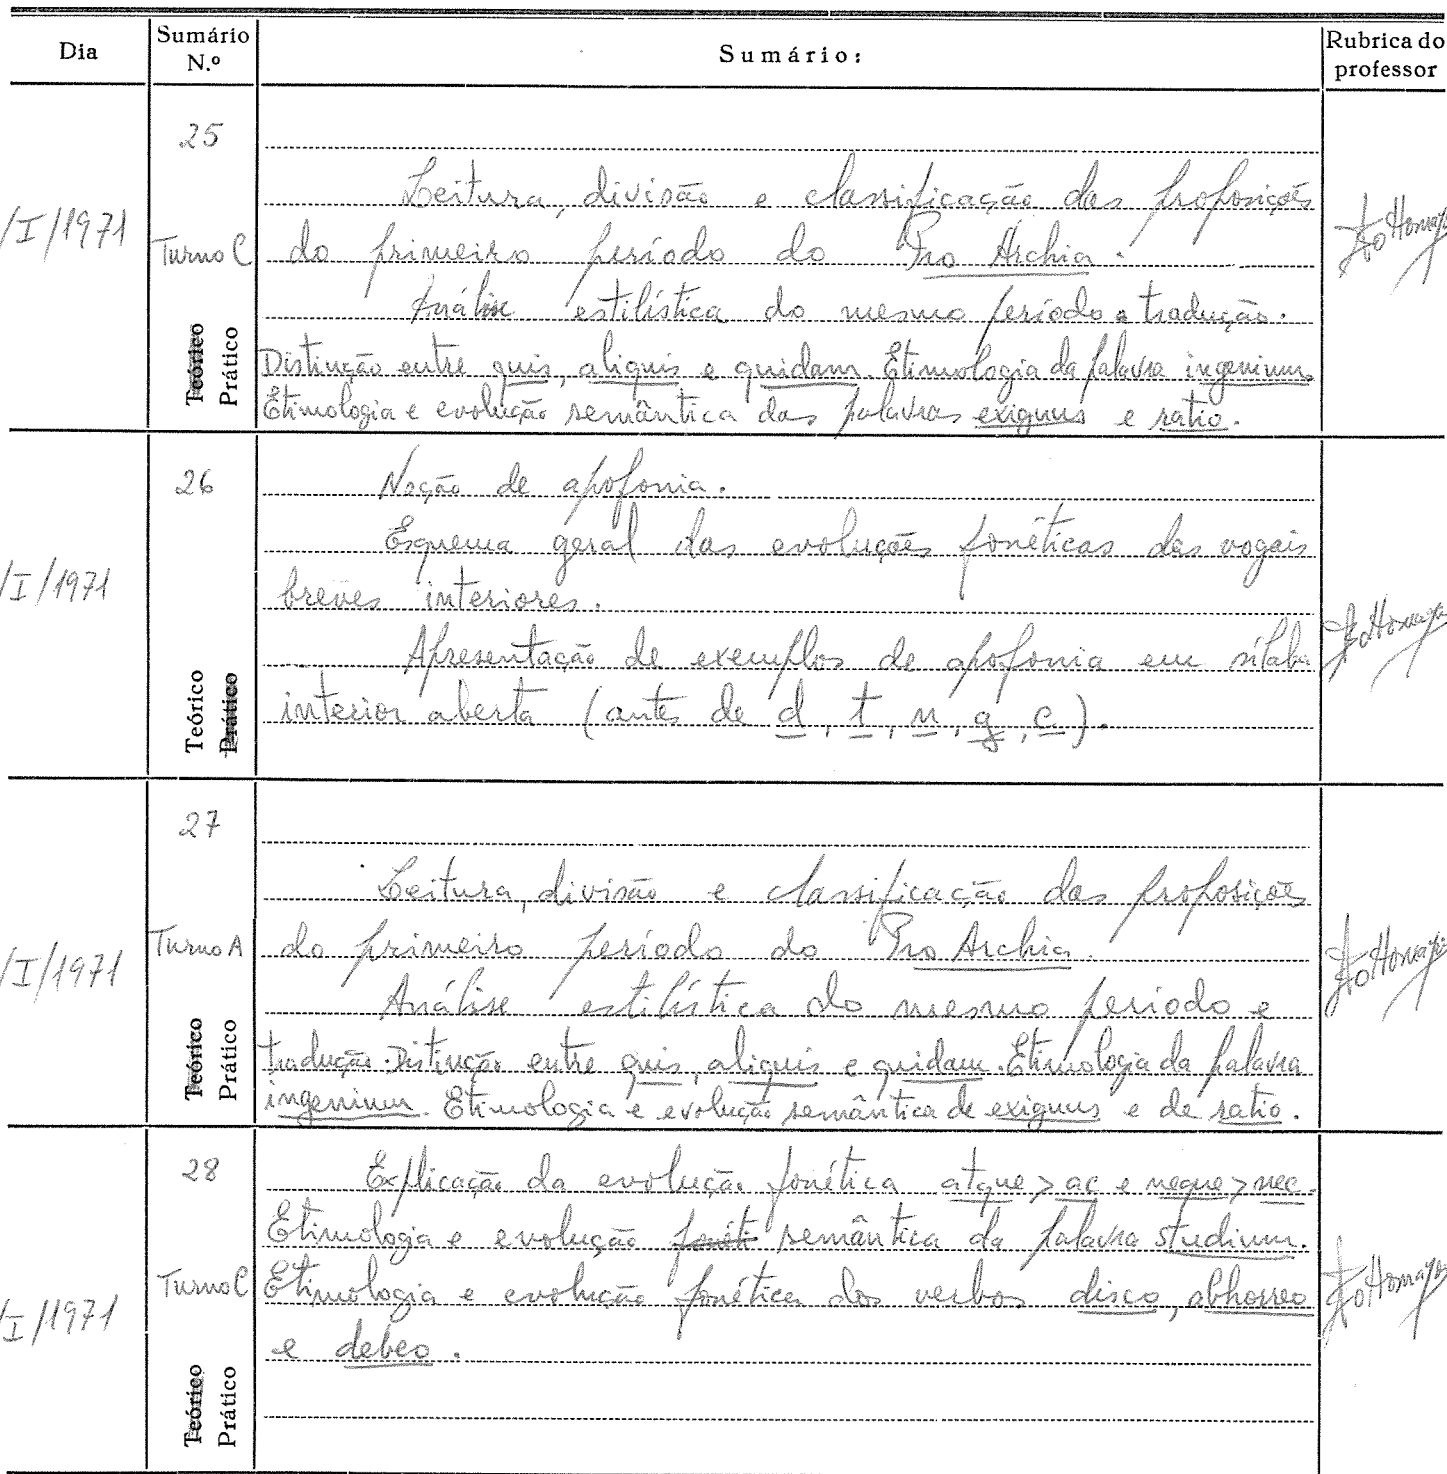 Dia
Sumário N.º
Sumário:
Rubrica do professor
/I/1971
25
Turno C
Teórico
Prático
Leitura, divisão e classificação das proposições
do primeiro período do Pro Archia.
Análise estilística do mesmo período e tradução.
Distinção entre quis, aliquis e quidam. Etimologia da palavra ingenium.
Etimologia e evolução semântica das palavras exiguus e ratio.
/I/1971
26
Teórico
Prático
Noção de apofonia.
Esquema geral das evoluções fonéticas das vogais
breves interiores.
Apresentação de exemplos de apofonia em sílaba
interior aberta (antes de d, t, n, g, c).
/I/1971
27
Turno A
Teórico
Prático
Leitura, divisão e classificação das proposições
do primeiro período do Pro Archia.
Análise estilística do mesmo período e
tradução. Distinção entre quis, aliquis e quidam. Etimologia da palavra
ingenium. Etimologia e evolução semântica de exiguus e de ratio.
/I/1971
28
Turno C
Teórico
Prático
Explicação da evolução fonética atque > ac e neque > nec.
Etimologia e evolução fonéti semântica da palavra studium.
Etimologia e evolução fonética dos verbos disco, abhorreo
e debeo.